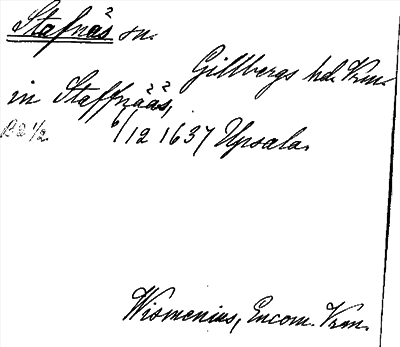 Stafnäs sn.
Gillbergs hd. Vrm.
in Staffnääs,
B2 1/2 6/12 1637 Upsala.
Wismenius, Encom. Vrm.